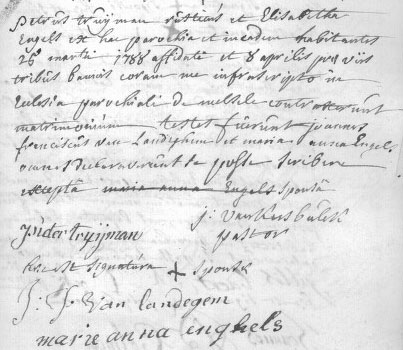 Petrus truijman rusticus et Elisabetha
Engels ex hac parochia et in eadem habitantes
25a martii 1788 affidati et 8 aprilis praeviis
tribus bannis coram me infrascripto in
Eclesia parochiali de melsele contraxerunt
matrimonium testes fuerunt joannes
franciscus van Landeghem et maria anna Engels
omnes declaraverunt se posse scribere
excepta maria anna Engels sponsa
j: van
pastor
Pider truijman
haec est signatura + sponsa
J: f: van landegem
marie anna enghels